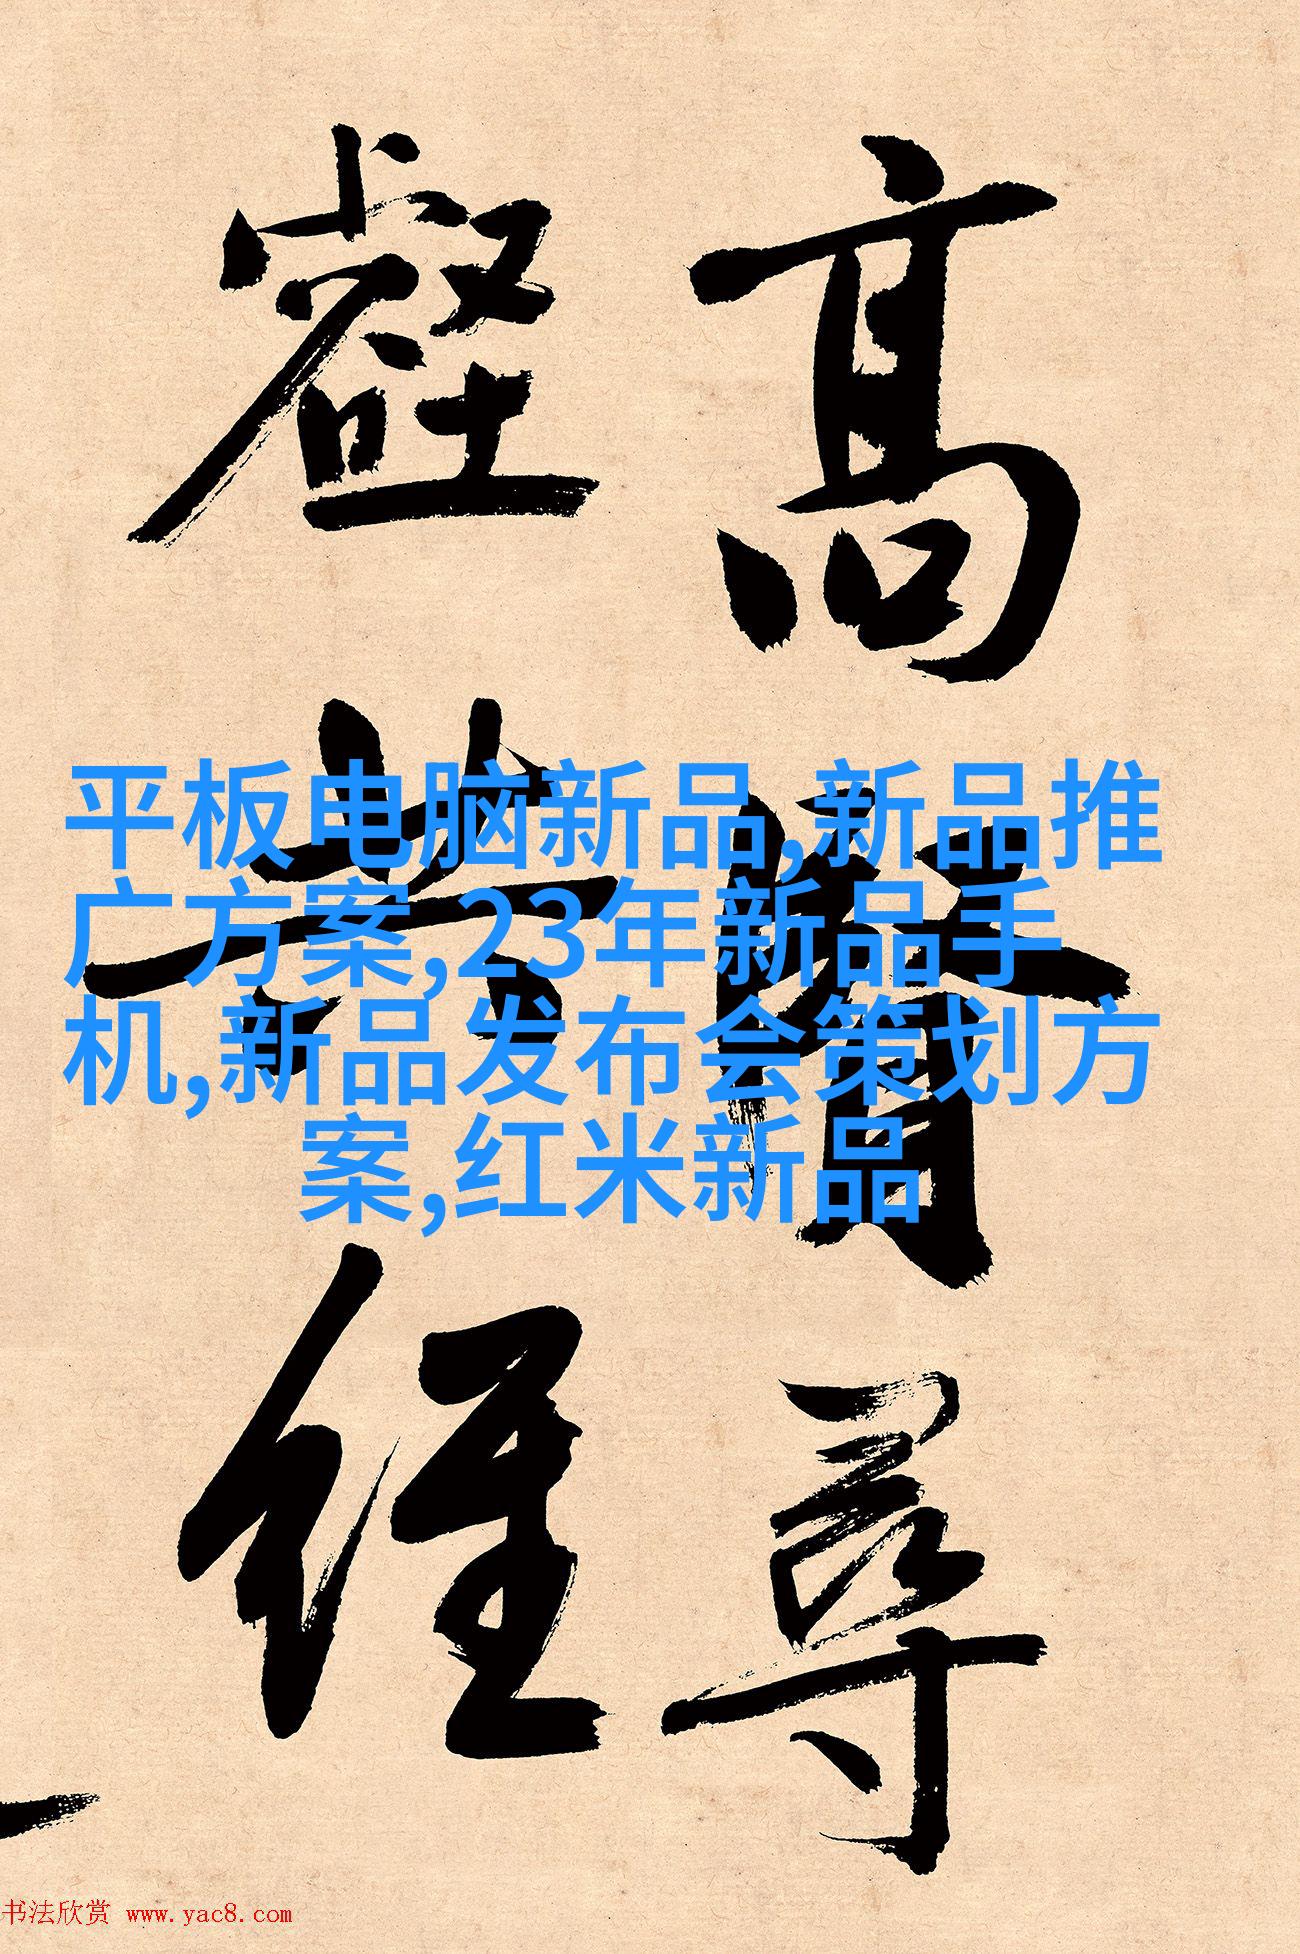 高
尋
壑
經
平板电脑新品,新品推
广方案,23年新品手
机,新品发布会策划方
案,红米新品
书法欣赏 www.yac8.com